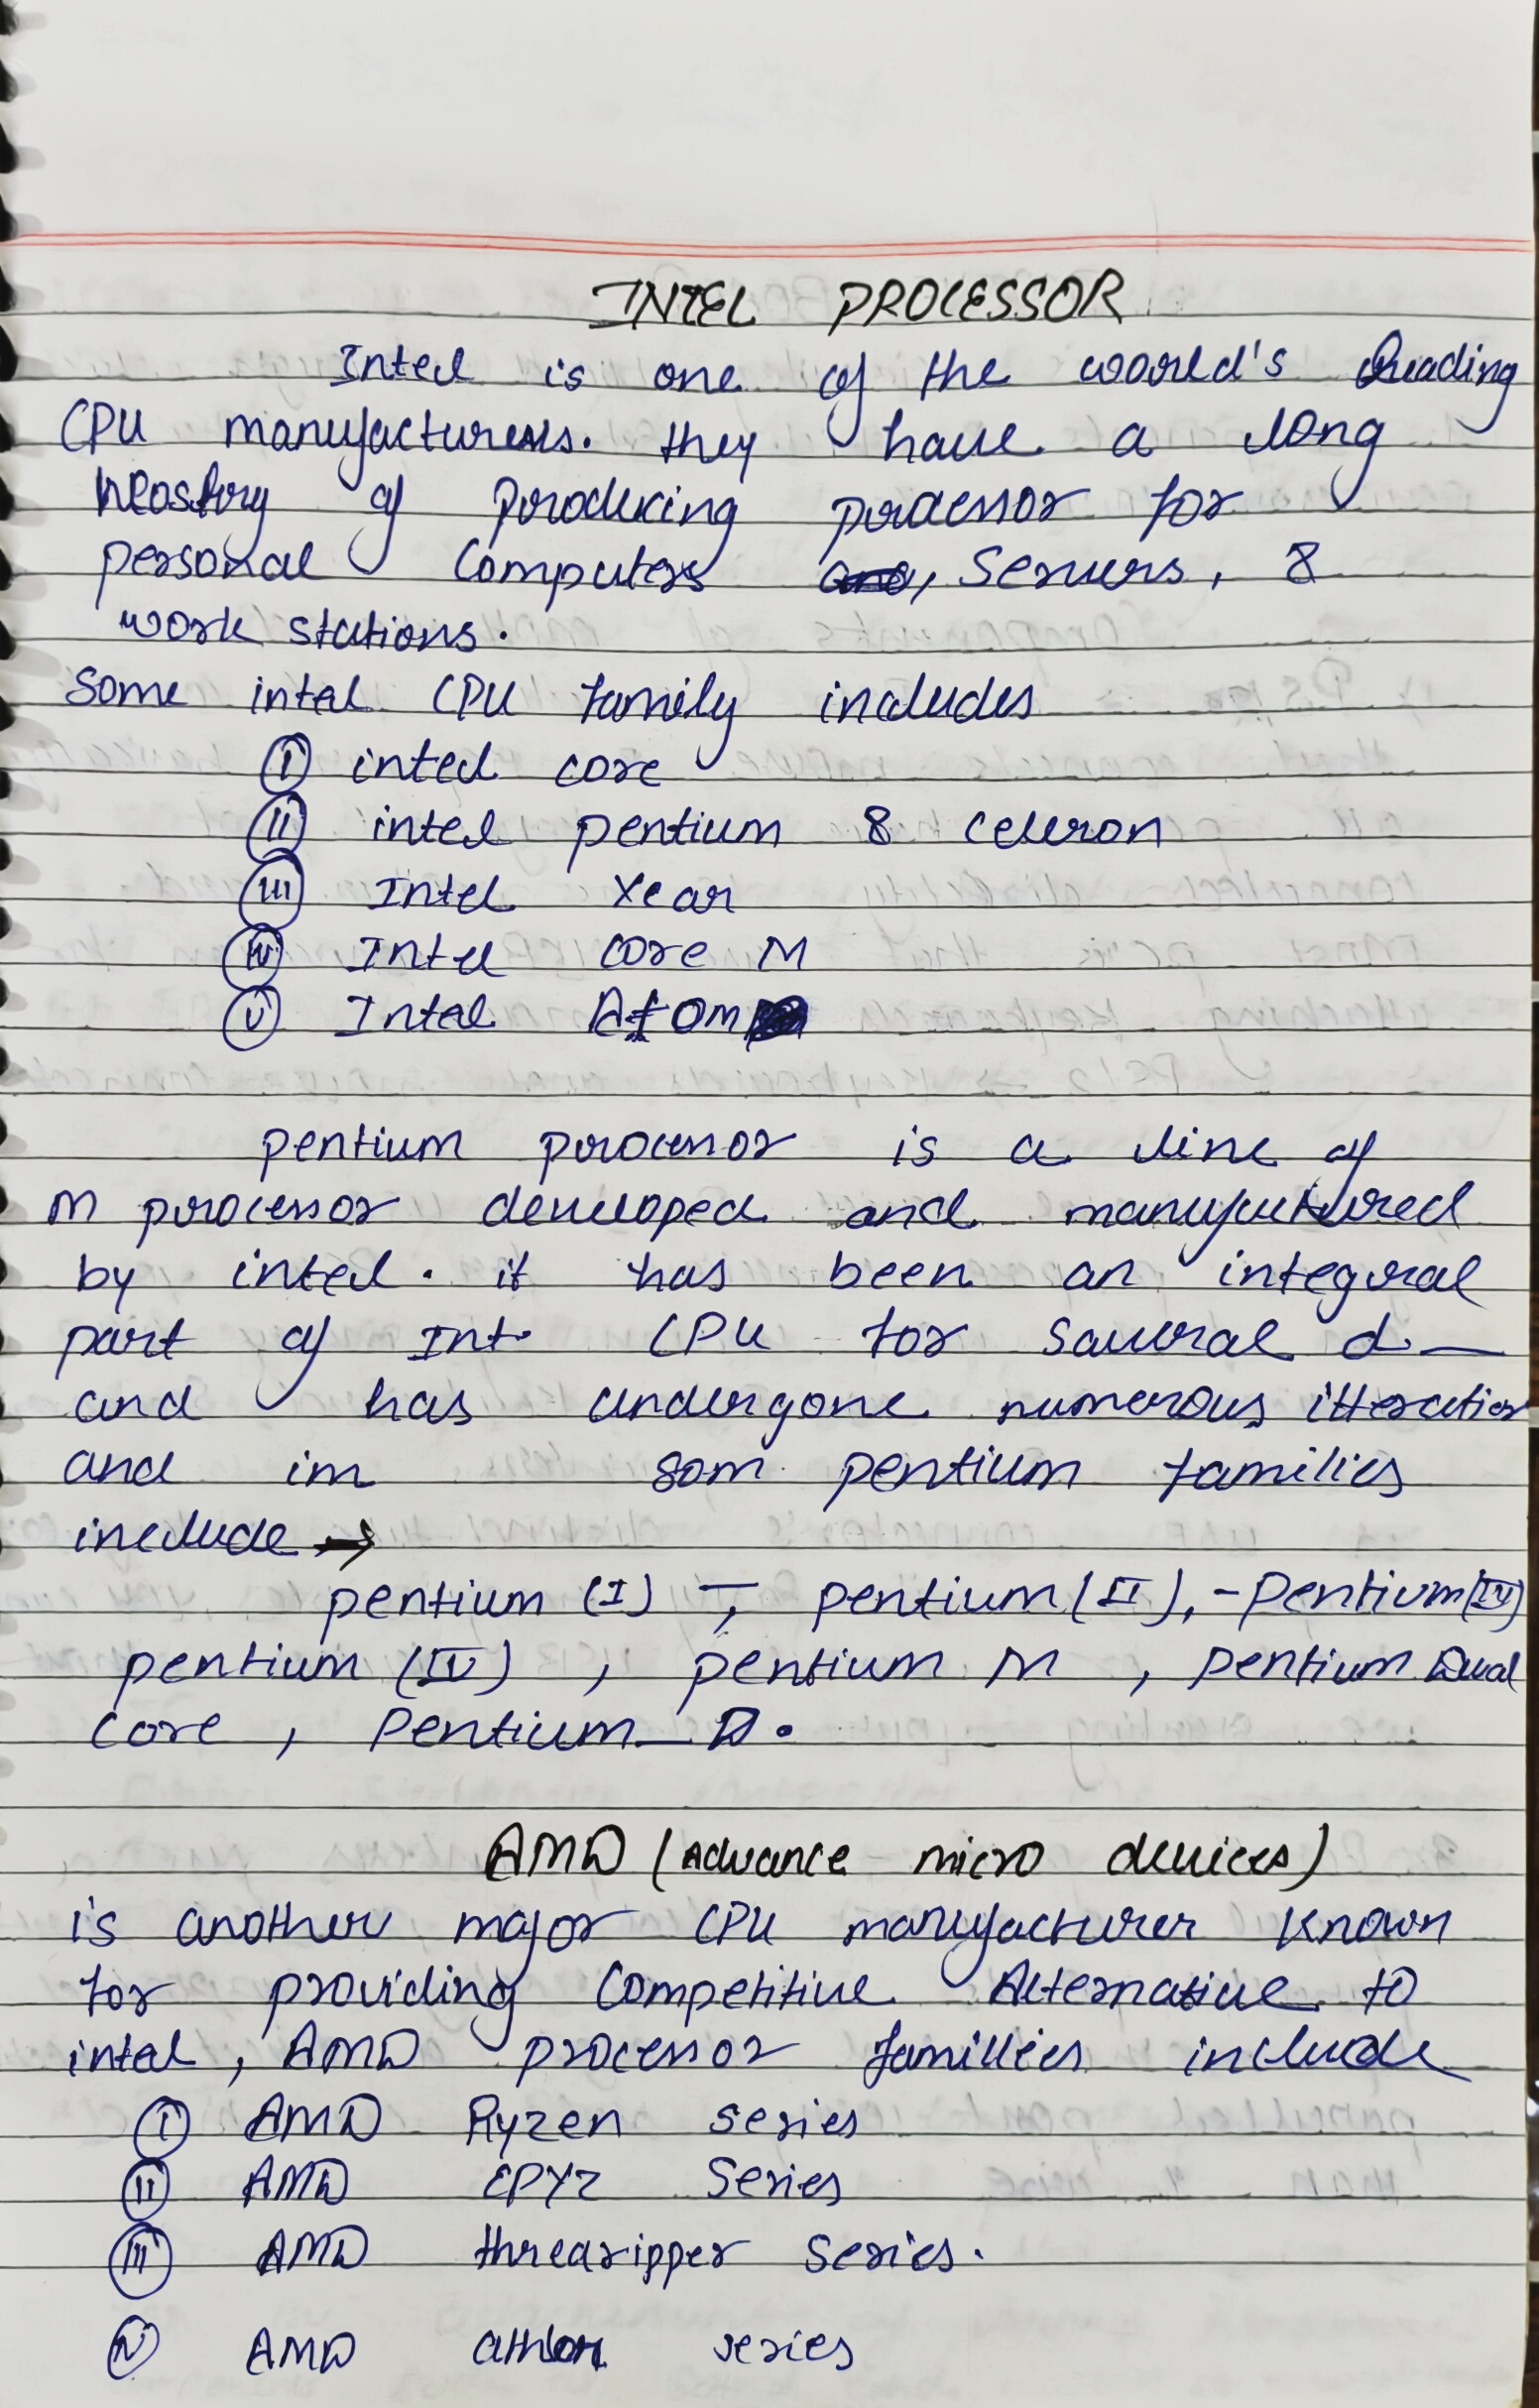 INTEL PROCESSOR
Intel is one of the world's leading
CPU manufacturers. they have a long
history of producing processor for
personal Computers , Servers, &
work stations.
Some intel CPU family includes
(i) intel core
(ii) intel pentium & celeron
(iii) Intel Xear
(iv) Intel core M
(v) Intel Atom
pentium processor is a line of
M processor developed and manufactured
by intel. it has been an integral
part of Int CPU for saveral d
and has undergone numerous itteration
and im som pentium families
include →
pentium (I) -, pentium (II), - Pentium (III)
pentium (IV) , pentium M , pentium Dual
Core , Pentium D.
AMD (Advance micro devices)
is another major CPU manufacturer known
for providing Competitive Alternative to
intel, AMD processor families include
(i) AMD Ryzen series
(ii) AMD EPYZ Series
(iii) AMD threadripper Series.
(iv) AMD athlon series